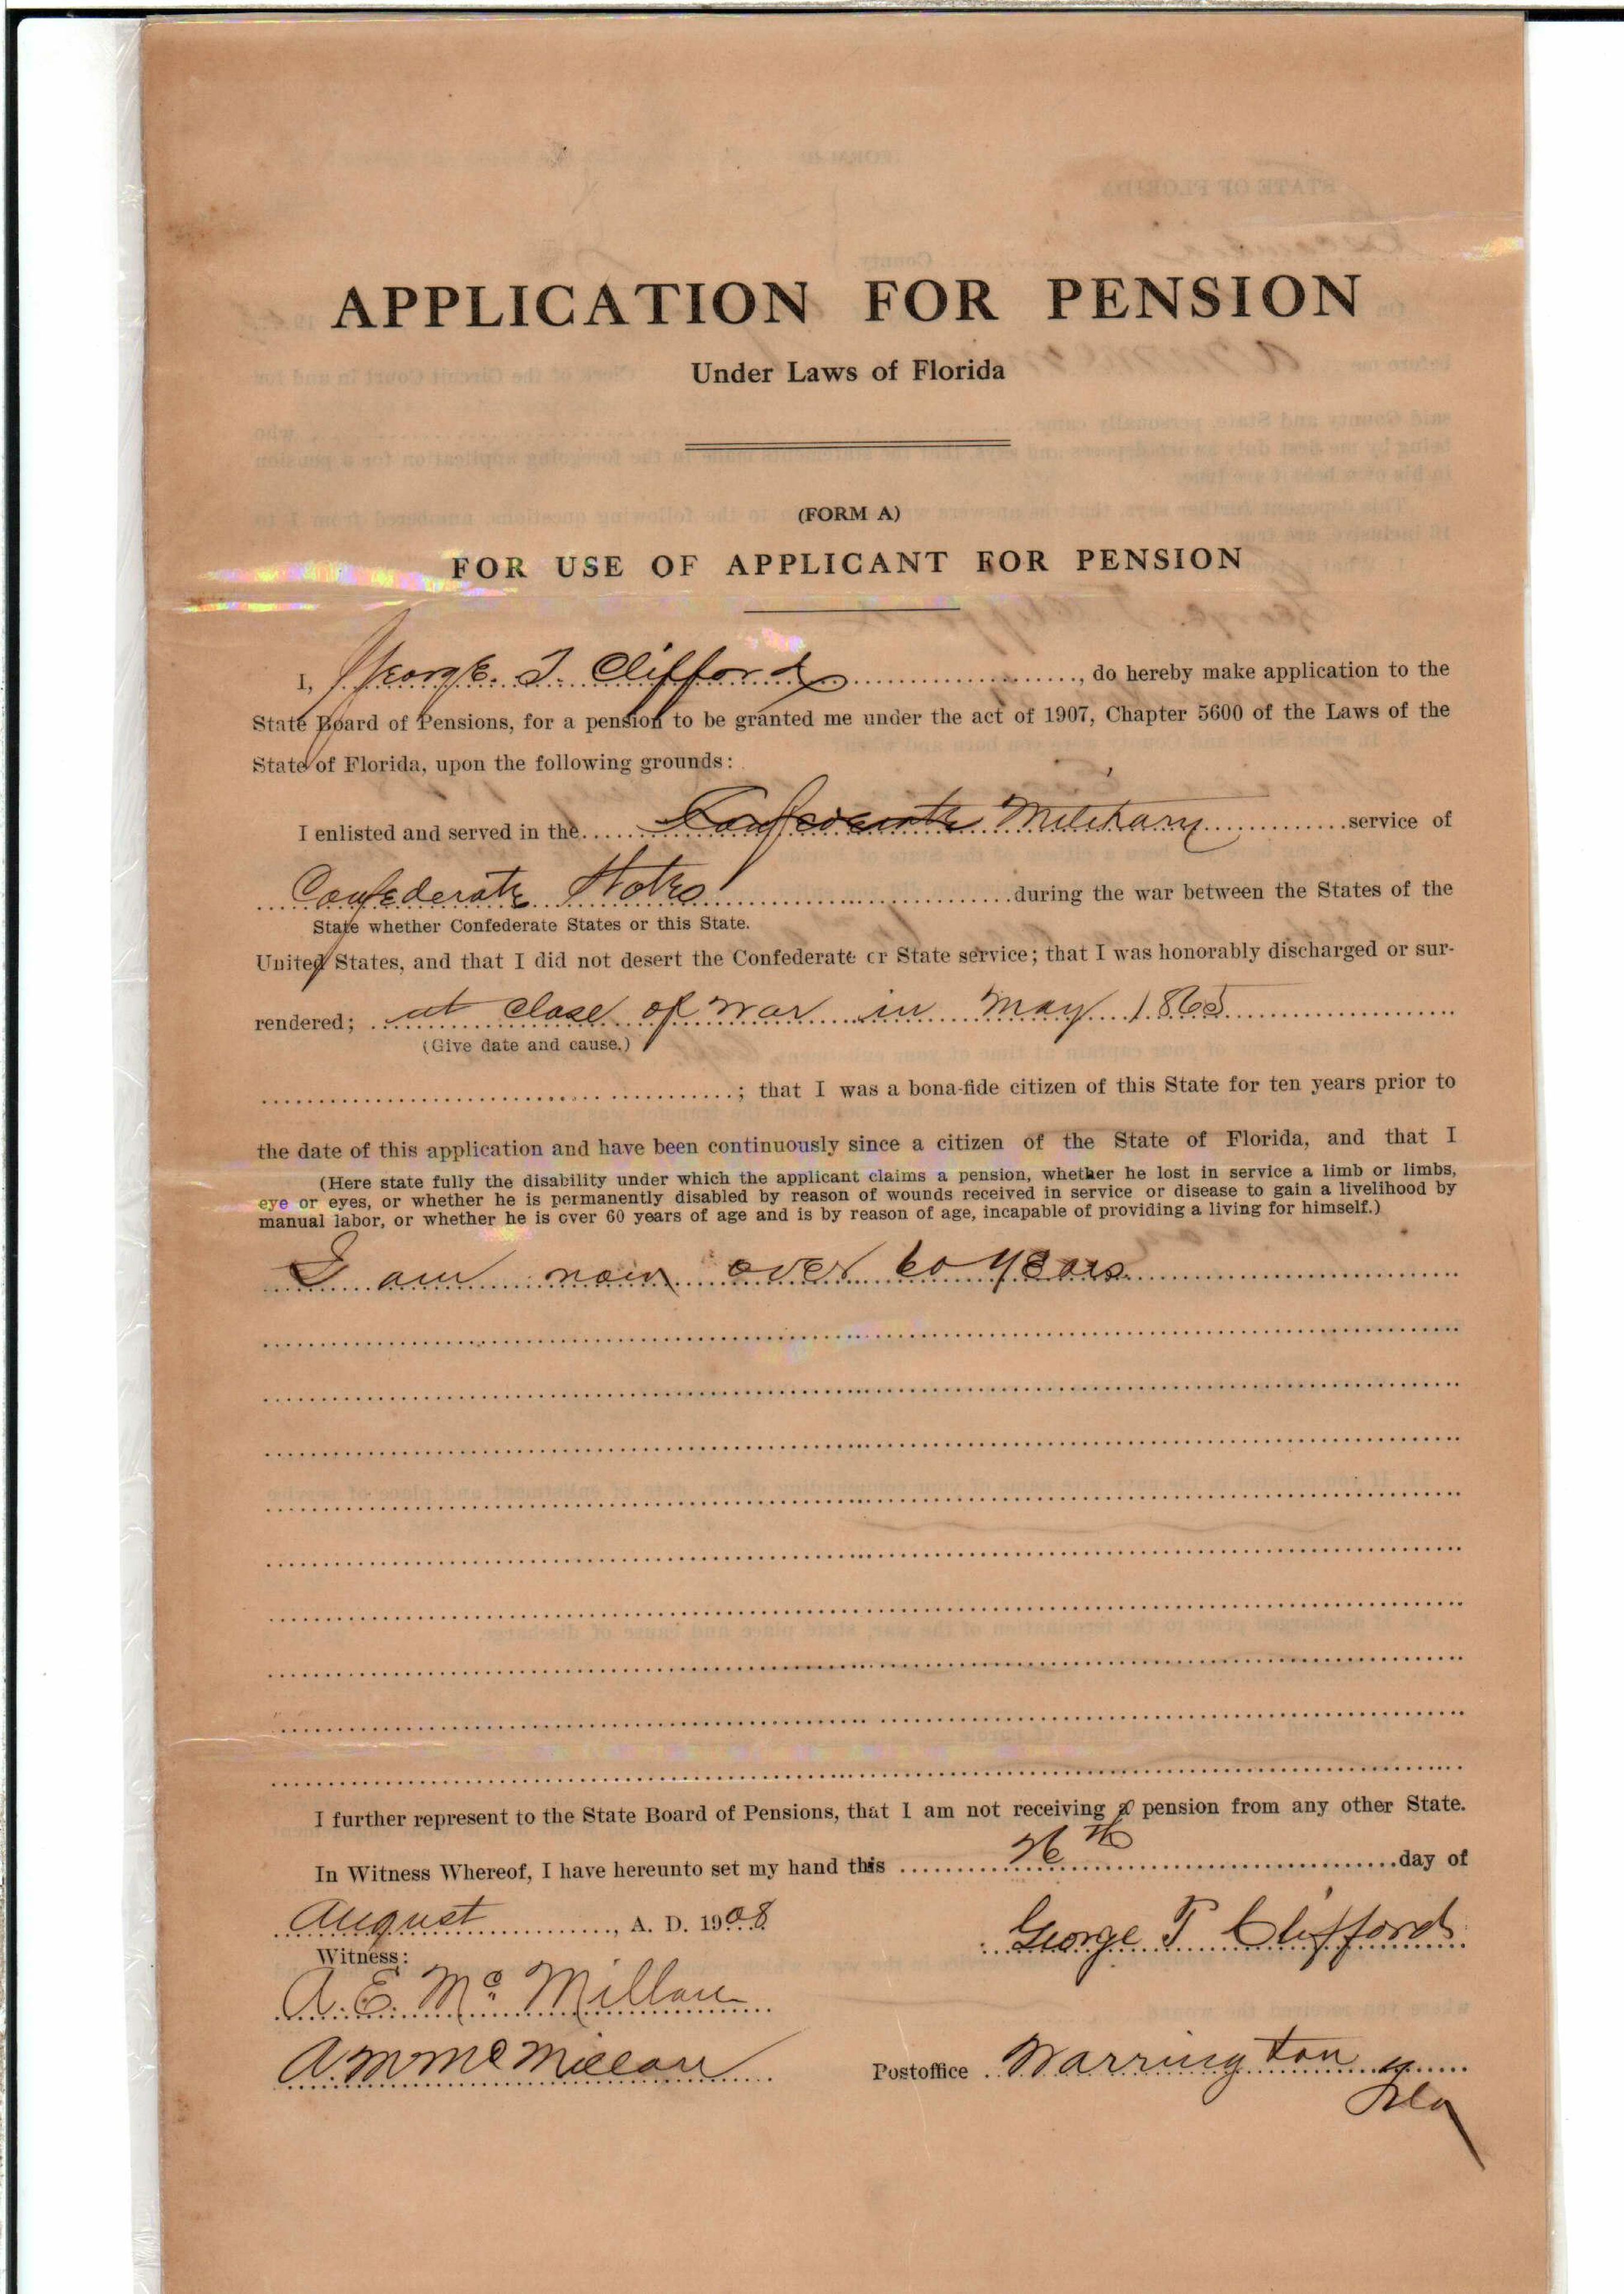 APPLICATION FOR PENSION
Under Laws of Florida
(FORM A)
FOR USE OF APPLICANT FOR PENSION
I, George. T. Clifford, do hereby make application to the
State Board of Pensions, for a pension to be granted me under the act of 1907, Chapter 5600 of the Laws of the
State of Florida, upon the following grounds:
I enlisted and served in the Confederate Military service of
Confederate States during the war between the States of the
State whether Confederate States or this State.
United States, and that I did not desert the Confederate or State service; that I was honorably discharged or sur-
rendered; at close of war in May 1865
(Give date and cause.)
; that I was a bona-fide citizen of this State for ten years prior to
the date of this application and have been continuously since a citizen of the State of Florida, and that I
(Here state fully the disability under which the applicant claims a pension, whether he lost in service a limb or limbs,
eye or eyes, or whether he is permanently disabled by reason of wounds received in service or disease to gain a livelihood by
manual labor, or whether he is over 60 years of age and is by reason of age, incapable of providing a living for himself.)
I am now over 60 years
I further represent to the State Board of Pensions, that I am not receiving a pension from any other State.
In Witness Whereof, I have hereunto set my hand this 26th day of
August, A. D. 1908
George T Clifford
Witness:
A. E. McMillan
A. M McMillan
Postoffice Warrington
Fla